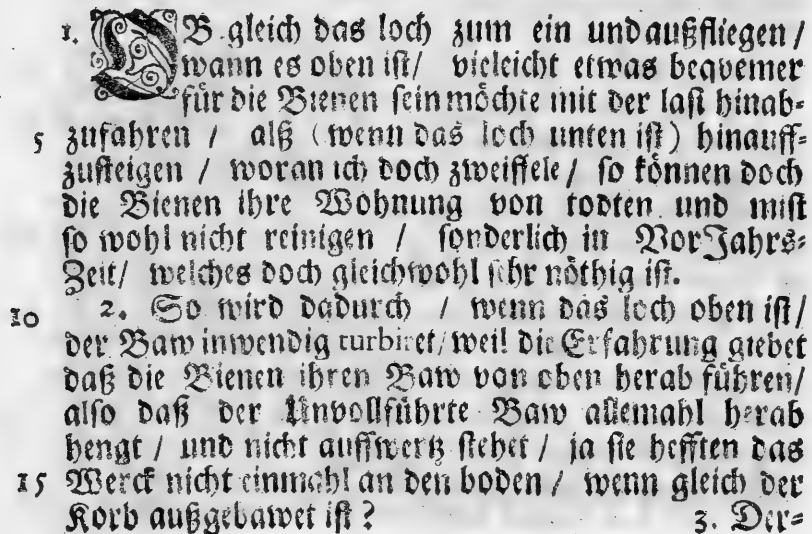 1. OB gleich das loch zum ein und außfliegen /
wann es oben ist / vieleicht etwas beqvemer
für die Bienen sein möchte mit der last hinab=
5 zufahren / alß (wenn das loch unten ist) hinauff=
zusteigen / woran ich doch zweiffele / so können doch
die Bienen ihre Wohnung von todten und mist
so wohl nicht reinigen / sonderlich in VorJahrs=
Zeit / welches doch gleichwohl sehr nöthig ist.
10 2. So wird dadurch / wenn das loch oben ist /
der Baw inwendig turbiret / weil die Erfahrung giebet
daß die Bienen ihren Baw von oben herab führen /
also daß der Unvollführte Baw allemahl herab
hengt / und nicht auffwertz stehet / ja sie hefften das
15 Werck nicht einmahl an den boden / wenn gleich der
Korb außgebawet ist? 3. Der=